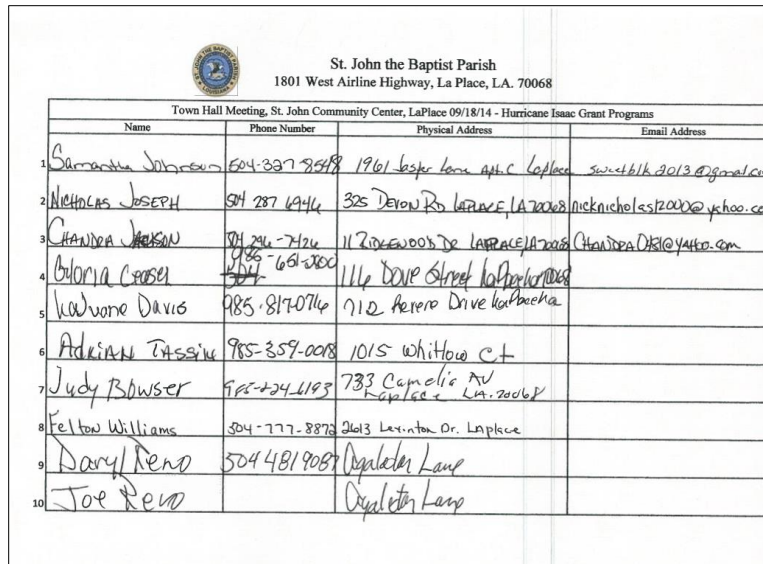 ST. JOHN THE BAPTIST PARISH LOUISIANA
St. John the Baptist Parish
1801 West Airline Highway, La Place, LA. 70068
Town Hall Meeting, St. John Community Center, LaPlace 09/18/14 - Hurricane Isaac Grant Programs
Name Phone Number Physical Address Email Address
1 Samantha Johnson 504-327-8548 1961 Jasper Lane Apt. C Laplace sweetblk2013@gmail.co
2 NICHOLAS JOSEPH 504 287 6946 325 DEVON RD LAPLACE, LA 70068 nicknicholas12000@yahoo.co
3 CHANDRA JACKSON 504 296-7426 11 RIDGEWOOD DR LAPLACE, LA 70068 CHANDRA0431@YAHOO.com
4 Gloria Ceaser 985-651-2800 116 Dove Street LaPlace
5 Davis 985-817-0716 712 Drive LaPlace
6 ADRIAN TASSIN 985-359-0018 1015 Whitlow Ct
7 Judy Bowser 985-224-6193 733 Camelia AV
Laplace LA. 70068
8 Felton Williams 504-777-8872 2613 Lexinton Dr. LAplace
9 Daryl Reno 504 4819087 Lane
10 Joe Reno Lane